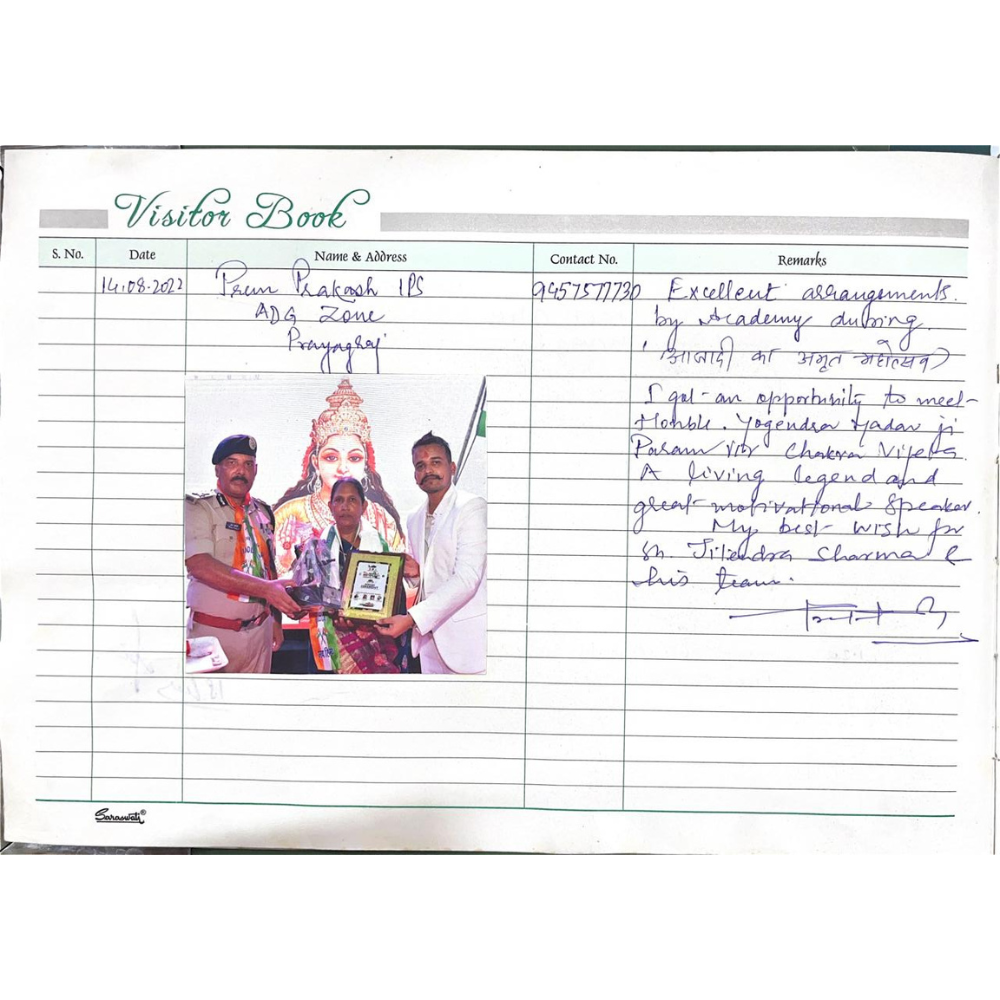 Visitor Book
S. No. Date Name & Address Contact No. Remarks
14.08.2022 Prem Prakash IPS 9457577730 Excellent arrangements.
ADG Zone by Academy during
Prayagraj 'आजादी का अमृत महोत्सव'
I got an opportunity to meet
Honble. Yogendra Yadav ji
Param Vir Chakra Vijeta.
A living legend and
great motivational speaker.
My best wish for
Sh. Jitendra Sharma &
his team.
Saraswati®